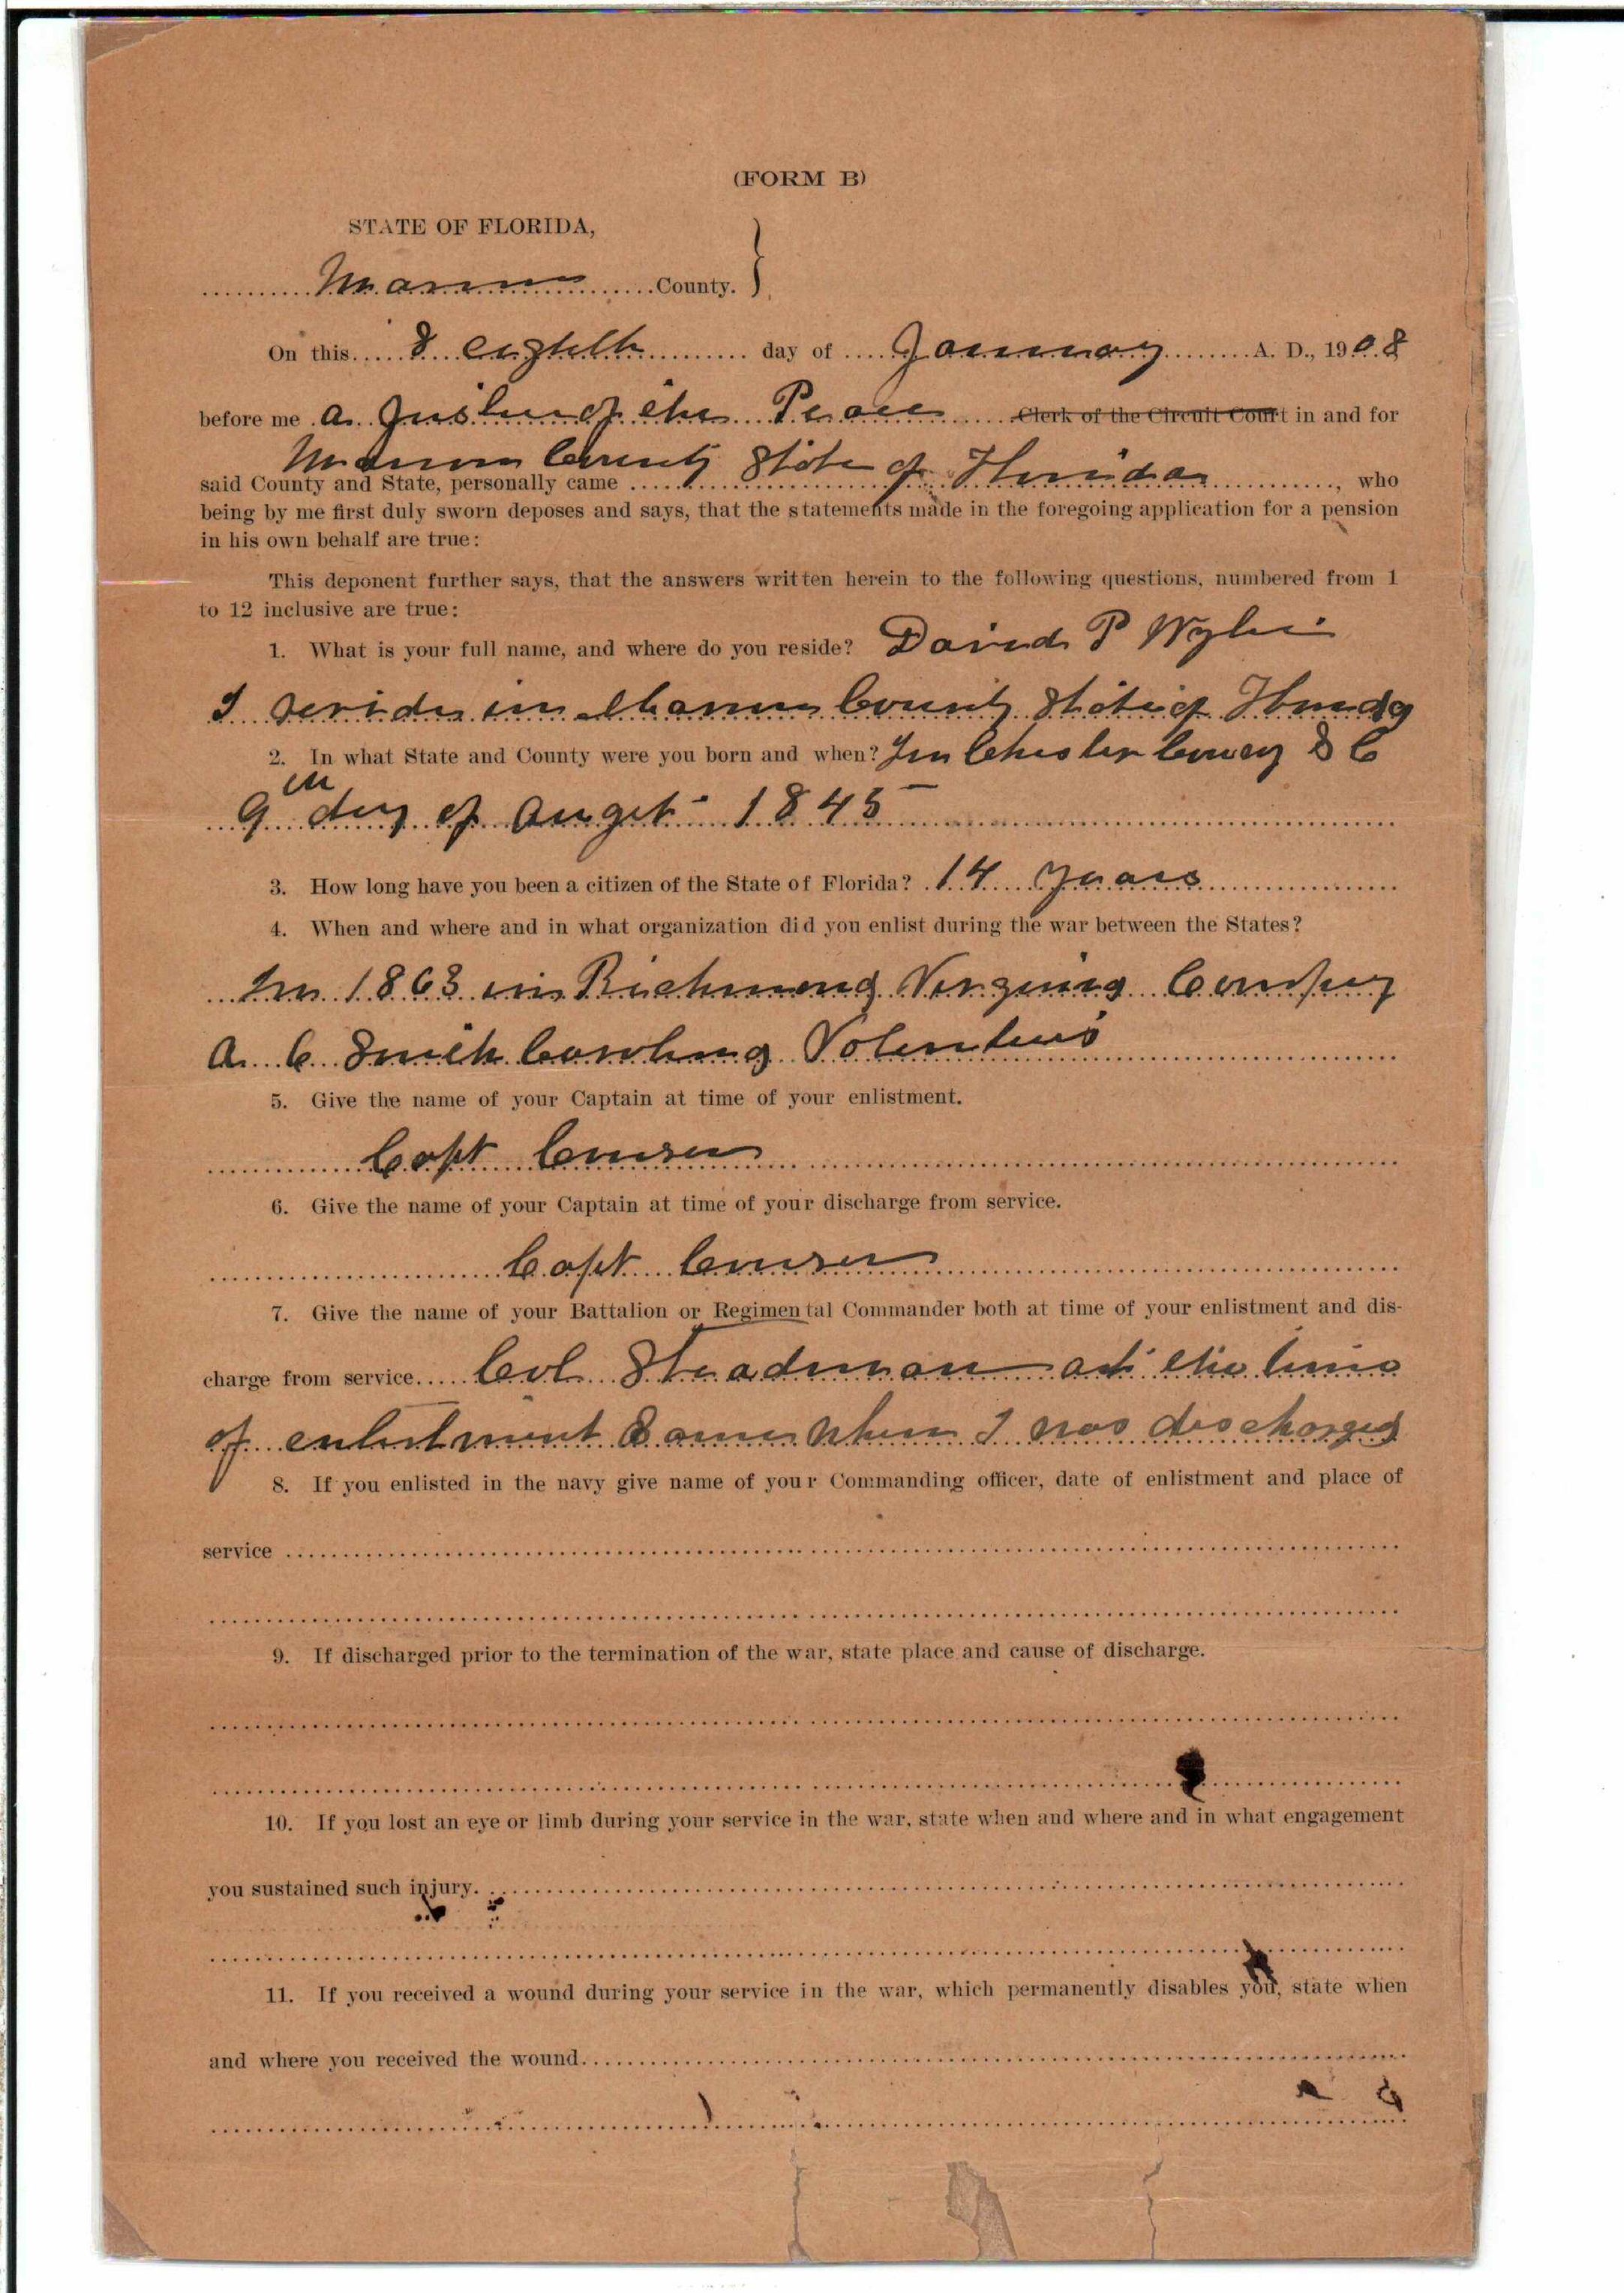 (FORM B)
STATE OF FLORIDA,
Marion County.
On this 8 eighth day of January A. D., 1908
before me a Justice of the Peace Clerk of the Circuit Court in and for
Marion County State of Florida
said County and State, personally came , who
being by me first duly sworn deposes and says, that the statements made in the foregoing application for a pension
in his own behalf are true:
This deponent further says, that the answers written herein to the following questions, numbered from 1
to 12 inclusive are true:
1. What is your full name, and where do you reside? David P Wylie
I reside in Marion County State of Florida
2. In what State and County were you born and when? In Chester County S C
9th day of August 1845
3. How long have you been a citizen of the State of Florida? 14 years
4. When and where and in what organization did you enlist during the war between the States?
In 1863 in Richmond Virginia Company
A 6 South Carolina Volunteers
5. Give the name of your Captain at time of your enlistment.
Capt
6. Give the name of your Captain at time of your discharge from service.
Capt
7. Give the name of your Battalion or Regimental Commander both at time of your enlistment and dis-
charge from service. Col Steadman at the time
of enlistment Same when I was discharged
8. If you enlisted in the navy give name of your Commanding officer, date of enlistment and place of
service
9. If discharged prior to the termination of the war, state place and cause of discharge.
10. If you lost an eye or limb during your service in the war, state when and where and in what engagement
you sustained such injury.
11. If you received a wound during your service in the war, which permanently disables you, state when
and where you received the wound.